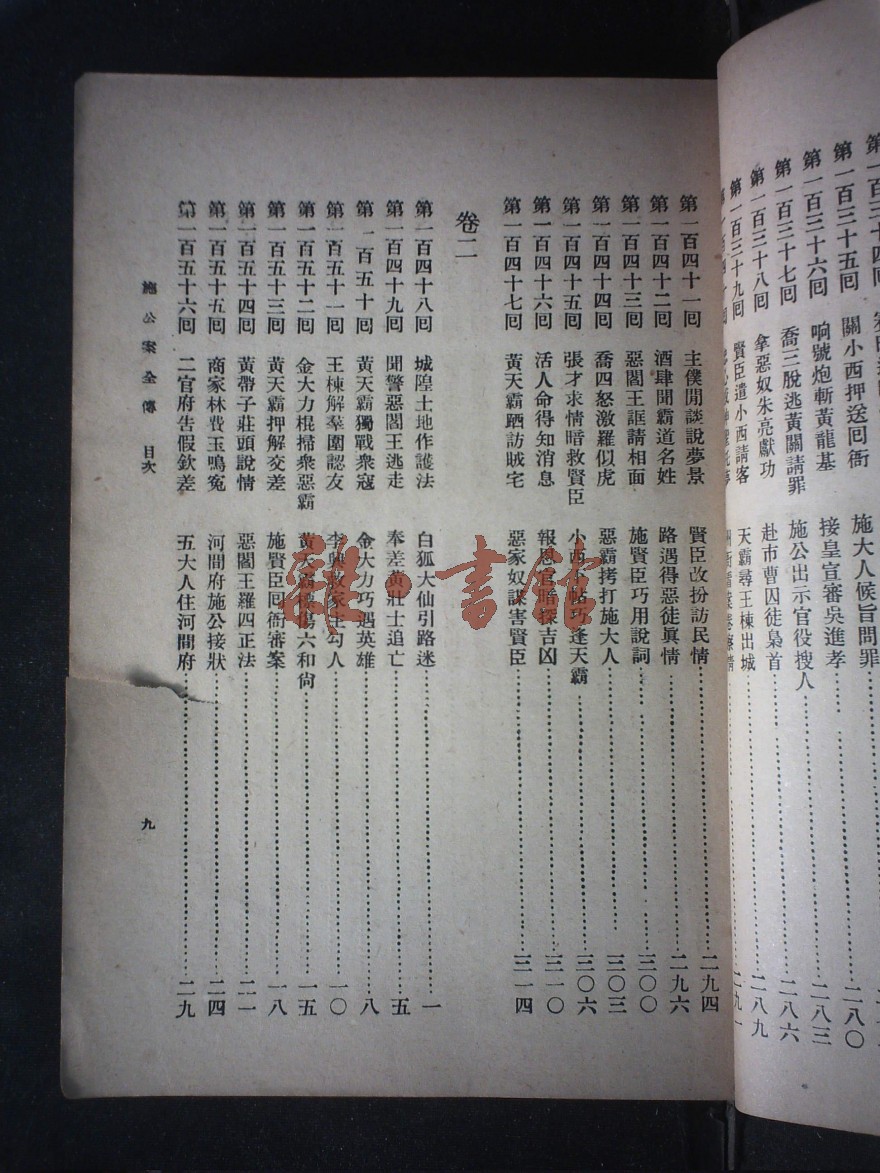 第一百三十五回 關小西押送回衙 施大人候旨問罪 二八〇
第一百三十六回 响號炮斬黃龍基 接皇宣審吳進孝 二八三
第一百三十七回 喬三脫逃黃關請罪 施公出示官役搜人 二八六
第一百三十八回 拿惡奴朱亮獻功 赴市曹囚徒梟首 二八九
第一百三十九回 賢臣遣小西請客 天霸尋王棟出城 二九一
第一百四十一回 主僕閒談說夢景 賢臣改扮訪民情 二九四
第一百四十二回 酒肆聞霸道名姓 路遇得惡徒眞情 二九六
第一百四十三回 惡閻王誆請相面 施賢臣巧用說詞 三〇〇
第一百四十四回 喬四怒激羅似虎 惡霸拷打施大人 三〇三
第一百四十五回 張才求情暗救賢臣 小西下帖巧逢天霸 三〇六
第一百四十六回 活人命得知消息 報恩官暗探吉凶 三一〇
第一百四十七回 黃天霸跴訪賊宅 惡家奴謀害賢臣 三一四
卷二
第一百四十八回 城隍土地作護法 白狐大仙引路迷 一
第一百四十九回 聞警惡閻王逃走 奉差黃壯士追亡 五
第一百五十回 黃天霸獨戰衆寇 金大力巧遇英雄 八
第一百五十一回 王棟解羣圍認友 李興救家主勾人 一〇
第一百五十二回 金大力棍掃衆惡霸 黃天霸標傷六和尙 一五
第一百五十三回 黃天霸押解交差 施賢臣回衙審案 一八
第一百五十四回 黃帶子莊頭說情 惡閻王羅四正法 二一
第一百五十五回 商家林費玉鳴寃 河間府施公接狀 二四
第一百五十六回 二官府告假欽差 五大人住河間府 二九
施公案全傳 目次
九
雅·書館